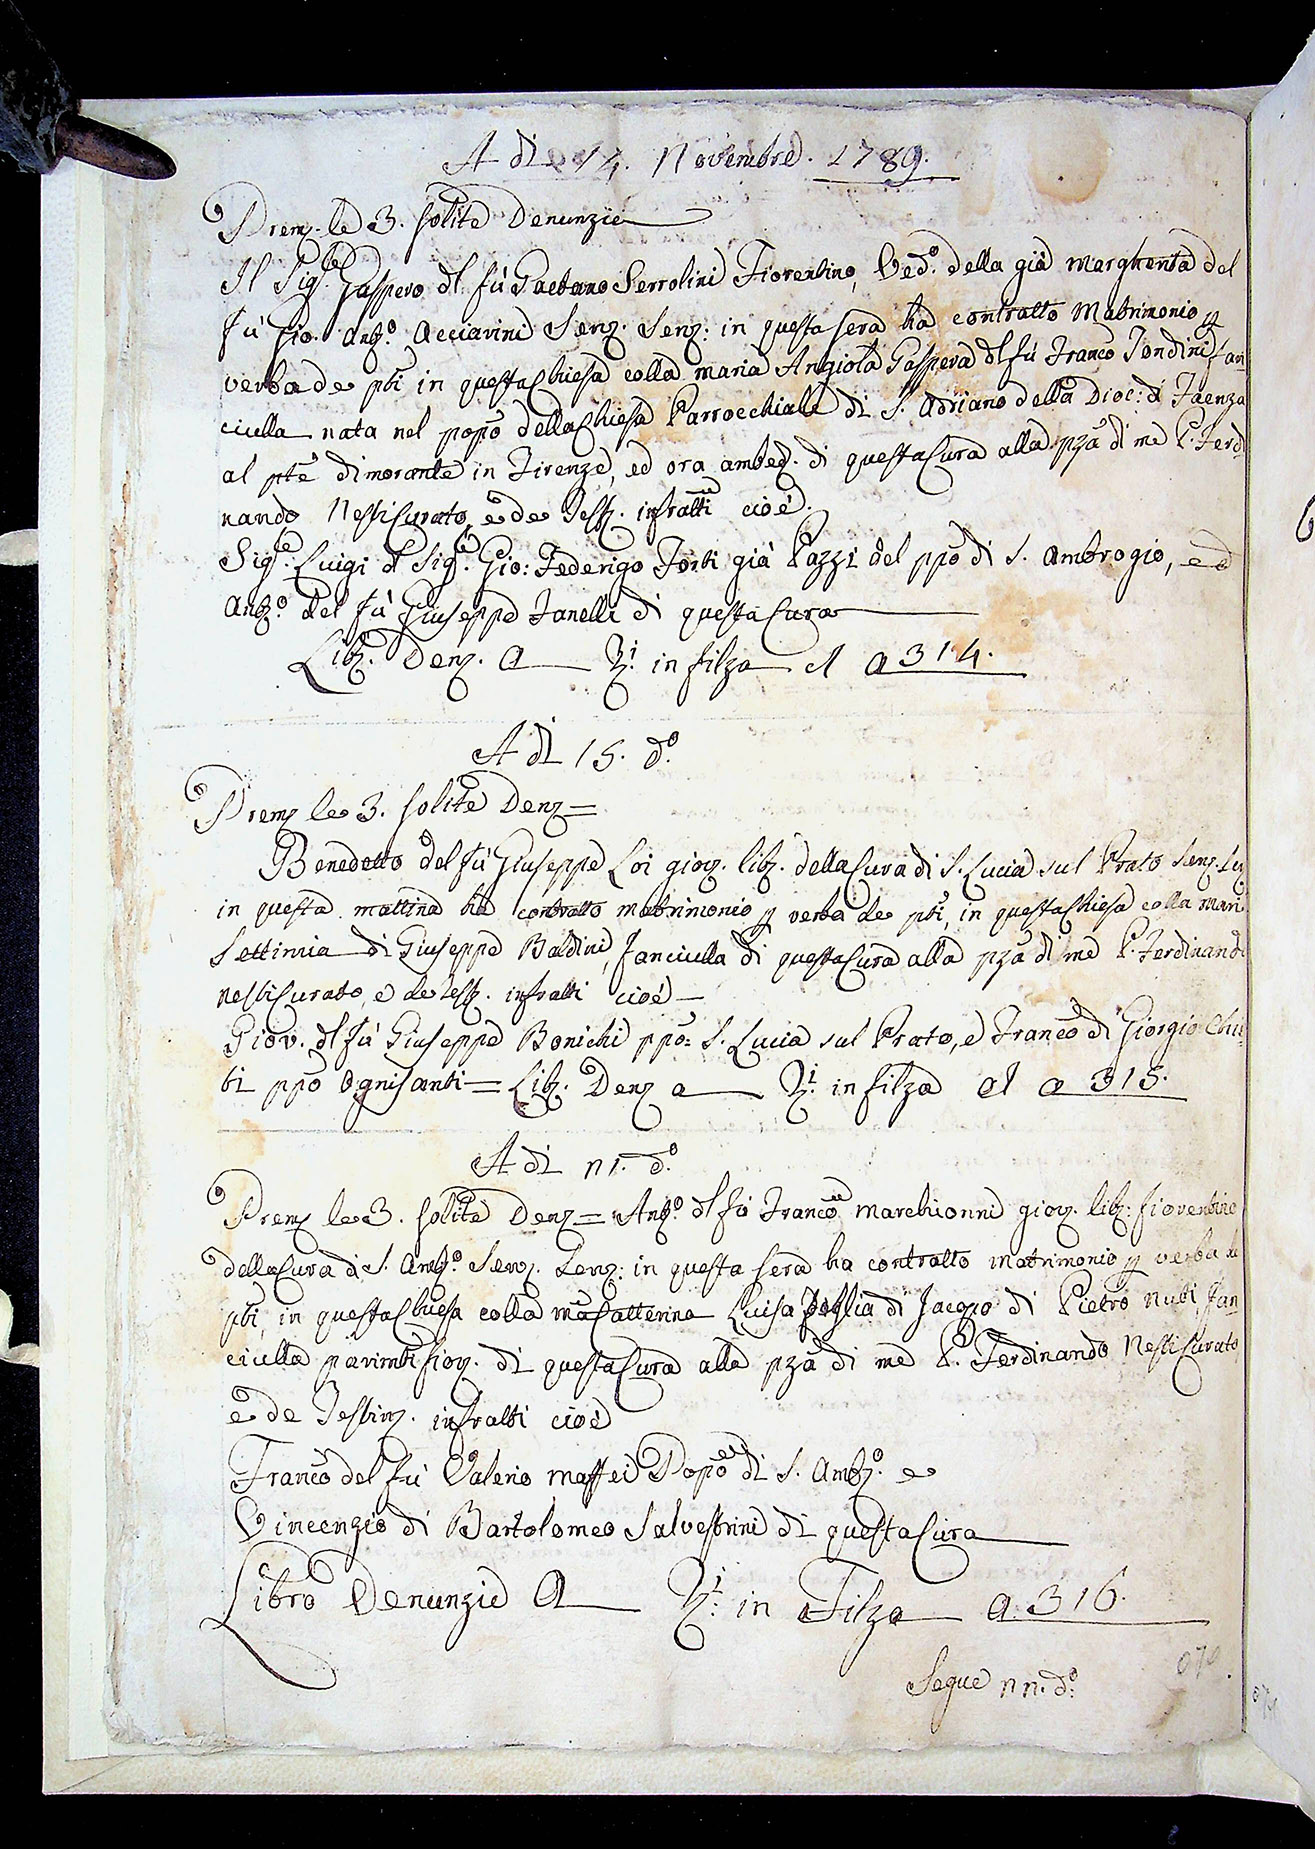 A dì 14. Novembre. 1789.
Prem. le 3. solite Denunzie
Il Sig.re Gaspero dl fù Gaetano Serrolini Fiorentino, Ved.o della già Margherita del
fù Gio. Ant.o Acciarini Senz. Senz: in questa sera ha contratto Matrimonio p
verba de pti in questa Chiesa colla Maria Angiola Gaspera dl fù Franco Tondini fan
ciulla nata nel popo della Chiesa Parrocchiale di S. Adriano della Dioc: di Faenza
al pte dimorante in Firenze, ed ora ambed. di questa Cura alla pza di me P. Ferdi
nando Nesti Curato, e de Test. infratti cioè.
Sig.e Luigi dl Sig.e Gio: Federigo Forti già Pazzi del ppo di S. Ambrogio, ed
Ant.o del fù Giuseppe Fanelli di questa Cura
Lib. Denz. A R.i in filza al a 314.
A dì 15. d.o
Prem le 3. solite Denz =
Benedetto del fù Giuseppe Loi giov. lib. della Cura di S. Lucia sul Prato Senz. Senz
in questa mattina ha contratto matrimonio p verba de pti, in questa Chiesa colla Mari
Settimia di Giuseppe Baldini, fanciulla di questa Cura alla pza di me P. Ferdinando
Nesti Curato, e de Test. infratti cioè
Giov. dl fù Giuseppe Bonichi ppo: S. Lucia sul Prato, e Franco di Giorgio Chi
ti ppo Ognisanti = Lib. Denz a R.i in filza al a 315.
A dì n1. d.o
Prem le 3. solite Denz = Ant.o dl fù Franco Marchionni giov. lib: fiorentino
della Cura di S. Amb.o Senz. Senz: in questa sera ha contratto matrimonio p verba de
pti, in questa Chiesa colla Ma Catterina Luisa figlia di Jacopo di Pietro Nuti fan
ciulla parimti fior. di questa Cura alla pza di me P. Ferdinando Nesti Curato,
e de Testim. infratti cioè
Franco del fù Valerio Maffei Popo di S. Amb.o e
Vincenzio di Bartolomeo Salvestrini di questa Cura
Libro Denunzie A R.i in Filza a 316.
Segue nn. d.o
070